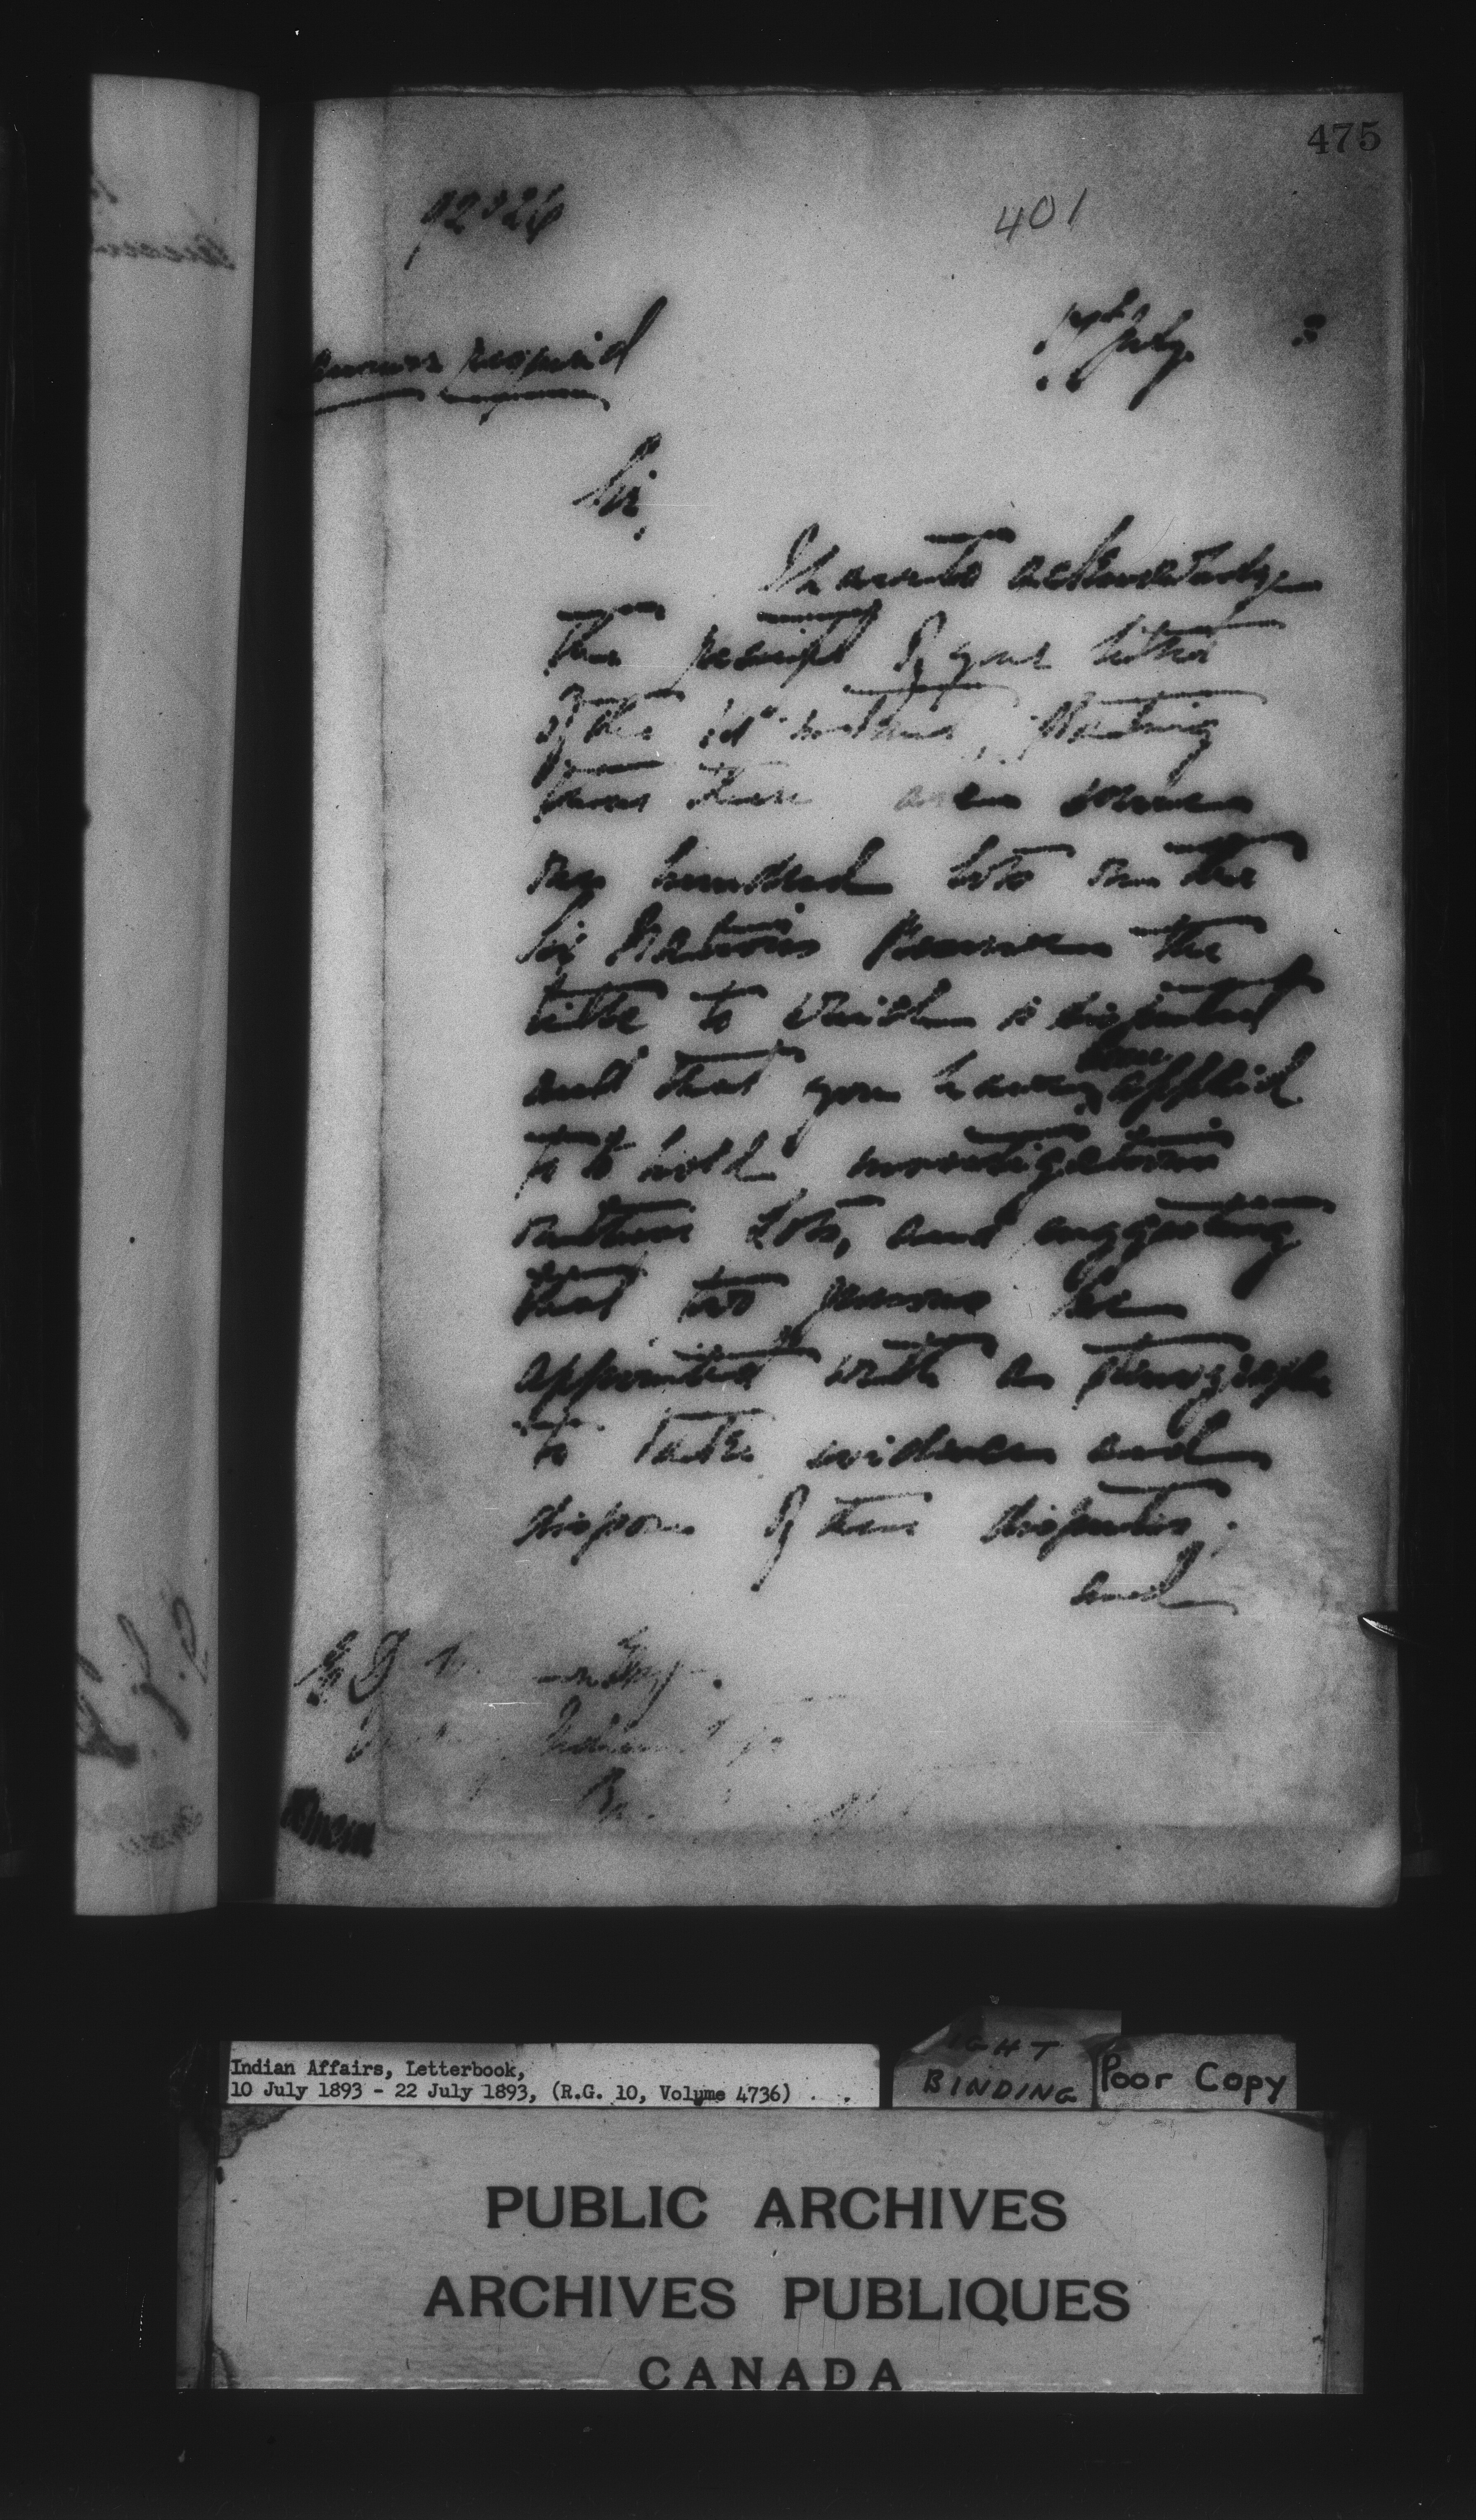 475
401
answer required
July 3
Sir,
I have to acknowledge
the receipt of your letter
of the instant, stating
that there are some
one hundred lots on the
Six Nations Reserve the
title to which is disputed
and that you have been applied
to to hold investigations
on these lots, and suggesting
that two persons be
appointed with a stenographer
to take evidence and
dispose of these disputes;
and
E D
Indian
Indian Affairs, Letterbook,
10 July 1893 - 22 July 1893, (R.G. 10, Volume 4736)
BINDING
Poor Copy
PUBLIC ARCHIVES
ARCHIVES PUBLIQUES
CANADA